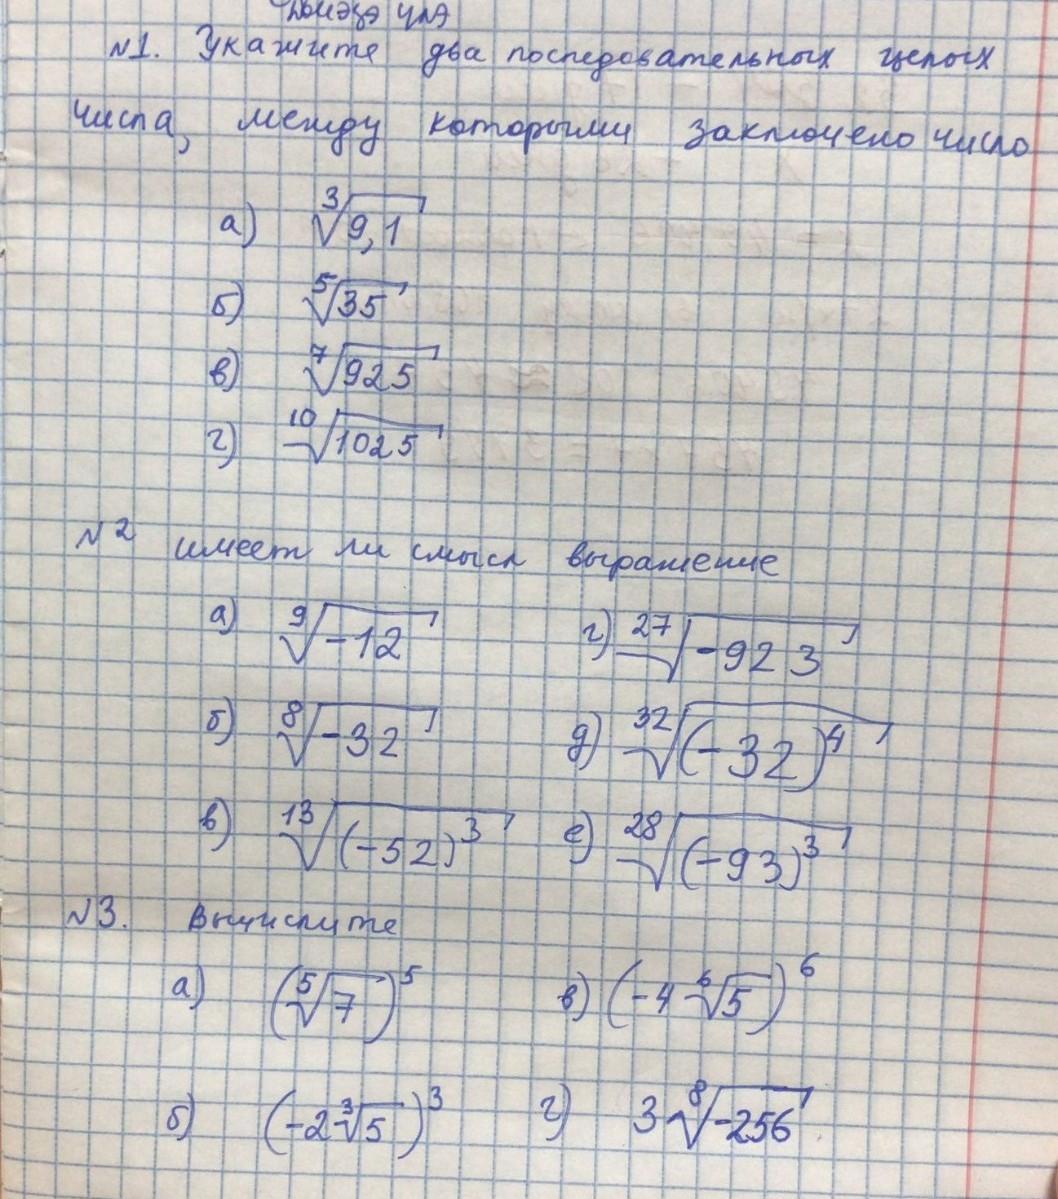 №1. Укажите два последовательных целых
числа, между которыми заключено число
а) ∛9,1
б) ⁵√35
в) ⁷√925
г) ¹⁰√1025
№2 имеет ли смысл выражение
а) ⁹√-12 г) ²⁷√-923
б) ⁸√-32 д) ³²√(-32)⁴
в) ¹³√(-52)³ е) ²⁸√(-93)³
№3. Вычислите
а) (⁵√7)⁵ в) (-4 ⁶√5)⁶
б) (-2∛5)³ г) 3 ⁸√-256